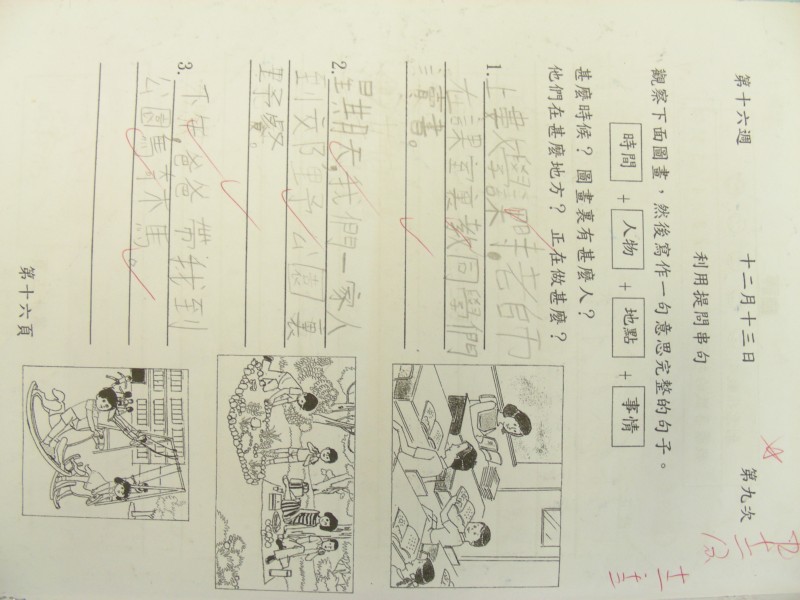 第十六週
十二月十三日
第九次
利用提問串句
觀察下面圖畫，然後寫作一句意思完整的句子。
時間 + 人物 + 地點 + 事情
甚麼時候？圖畫裏有甚麼人？
他們在甚麼地方？正在做甚麼？
1. 上課時老師
在課室裏教同學們
讀書。
2. 星期天,我們一家人
到郊野公園裏
野餐。
3. 下午,爸爸帶我到
公園
木馬。
第十六頁